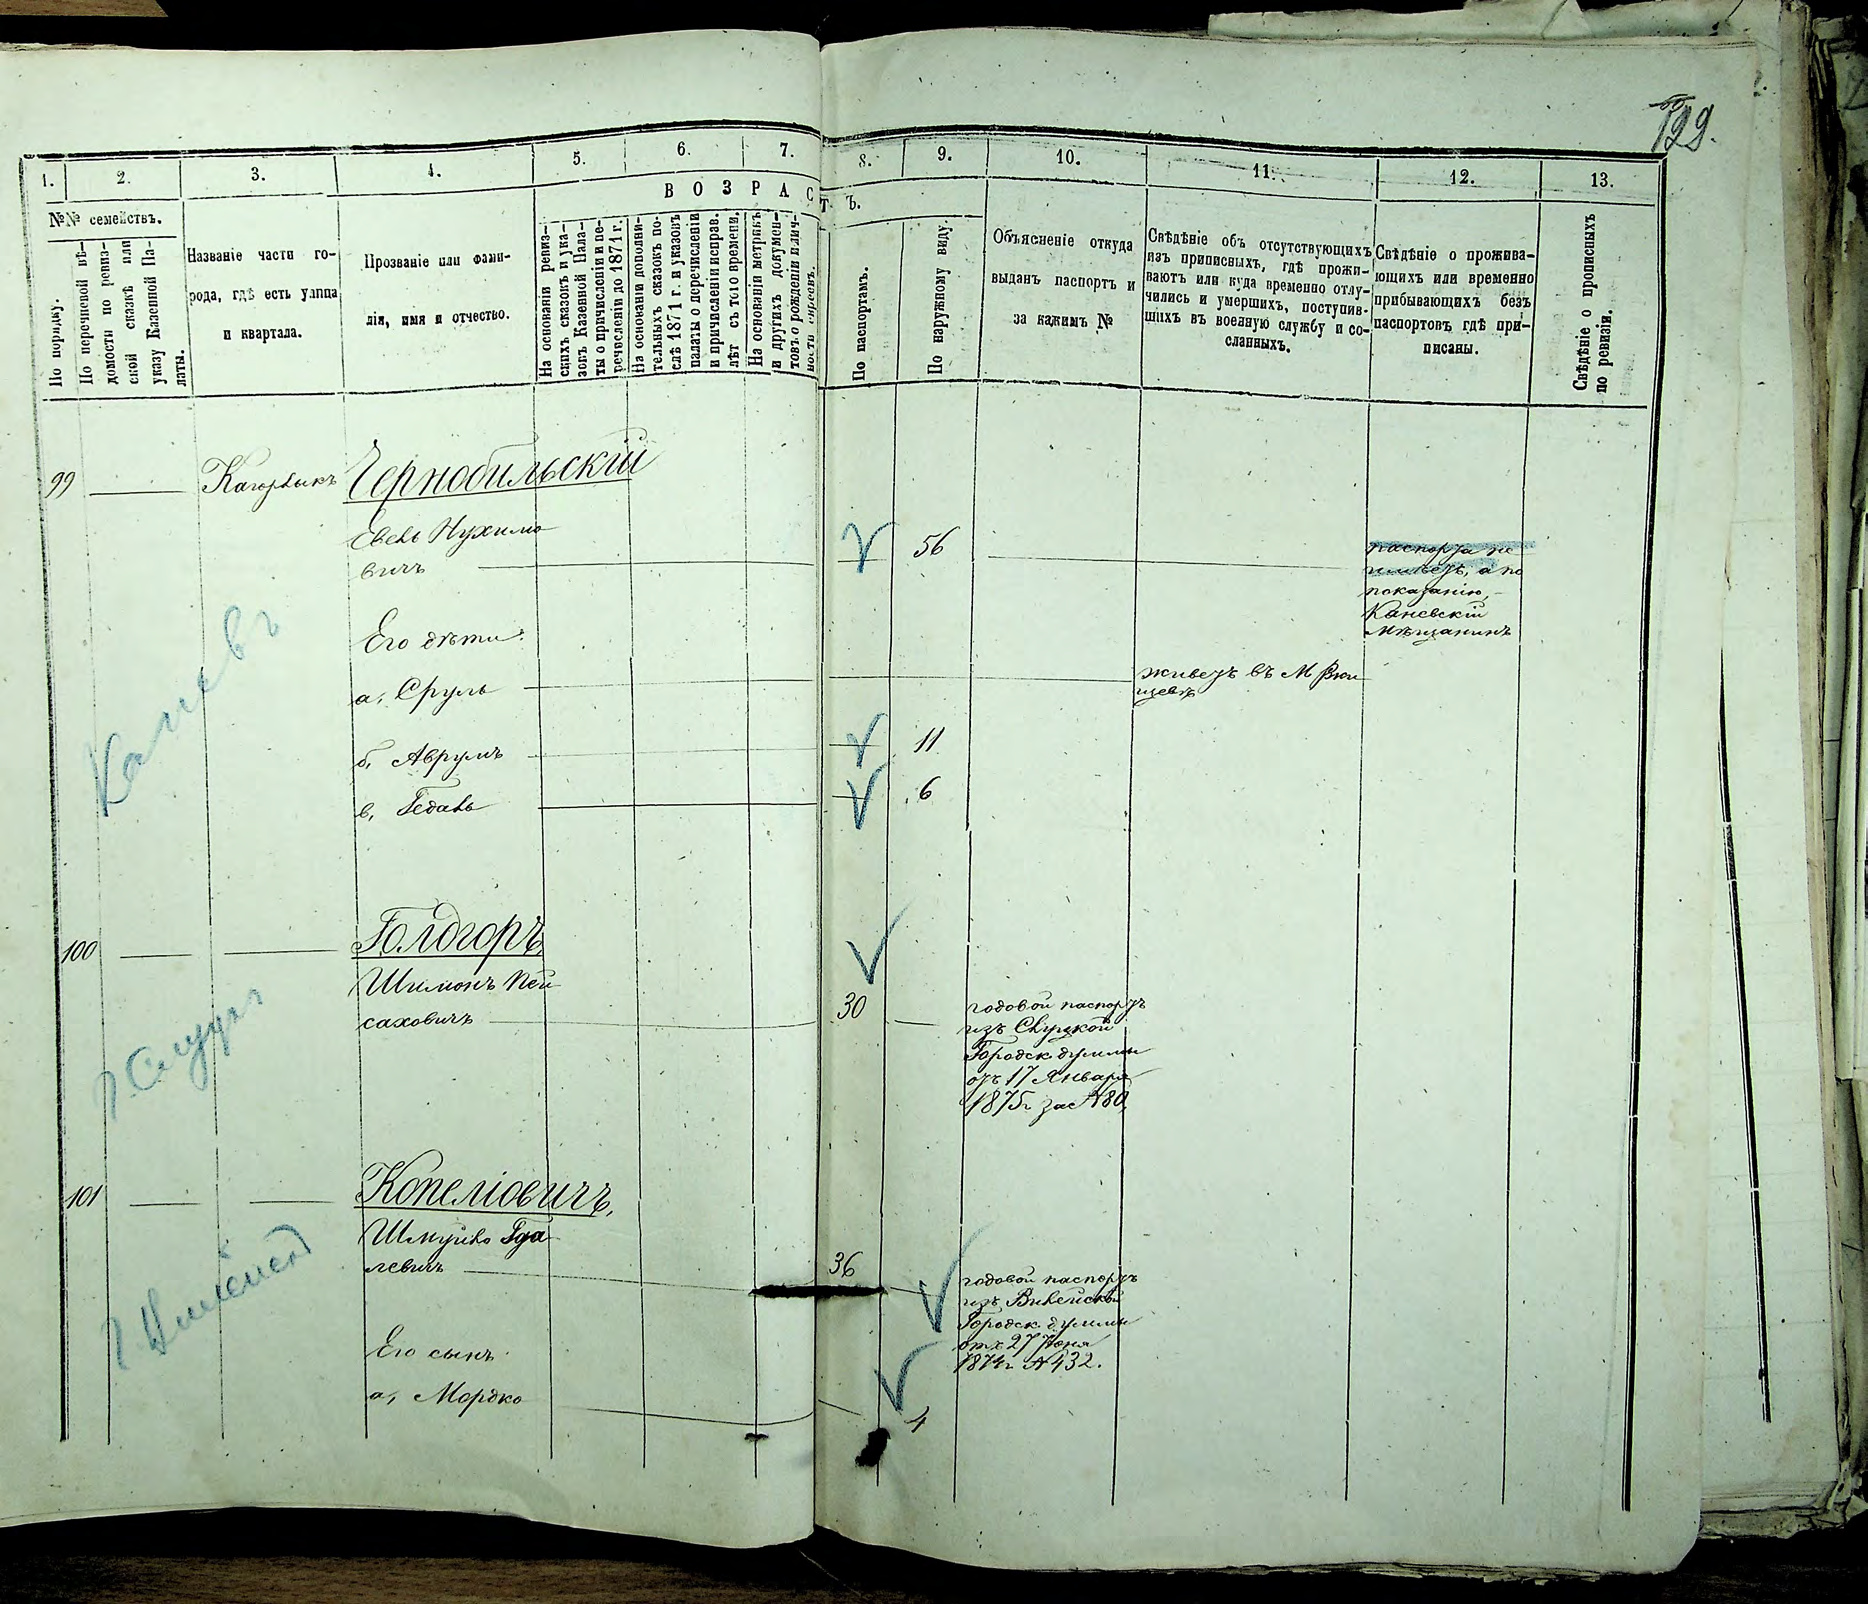 129.
1.
2.
3.
4.
5.
6.
7.
8.
9.
10.
11.
12.
13.
ВОЗРАСТЪ.
№№ семействъ.
По порядку.
По перечневой вѣ-
домости по ревиз-
ской сказкѣ или
указу Казенной Па-
латы.
Названіе части го-
рода, гдѣ есть улица
и квартала.
Прозваніе или фами-
лія, имя и отчество.
На основаніи ревиз-
скихъ сказокъ и ука-
зовъ Казенной Пала-
ты о причисленіи и пе-
речисленіи до 1871 г.
На основаніи дополни-
тельныхъ сказокъ по-
слѣ 1871 г. и указовъ
палаты о перечисленіи
и причисленіи исправ.
лѣт съ того времени.
На основаніи метрикъ
и другихъ докумен-
товъ о рожденіи и лич-
По паспортамъ.
По наружному виду.
Объясненіе откуда
выданъ паспортъ и
за какимъ №
Свѣдѣніе объ отсутствующихъ
изъ приписныхъ, гдѣ прожи-
ваютъ или куда временно отлу-
чились и умершихъ, поступив-
шихъ въ военную службу и со-
сланныхъ.
Свѣдѣніе о прожива-
ющихъ или временно
прибывающихъ безъ
паспортовъ, гдѣ при-
писаны.
Свѣдѣніе о прописныхъ
по ревизіи.
99
Кагарлыкъ
Чернобильскій
Евель Нухимо
вичъ
56
паспорта не
имѣетъ, а по
показанію, -
Каневскій
мѣщанинъ
Каневъ
Его дѣти:
а, Сруль
живетъ въ М Ржи
щевѣ
б, Аврумъ
11
в, Гедаль
6
100
Голдгоръ
Шимонъ Пей
саховичъ
30
годовой паспортъ
изъ Слуцкой
Городск думмы
отъ 17 Января
1875г за №80
г. Слуцкъ
101
Копеліовичъ,
Шмуйло Гда
левичъ
36
годовой паспортъ
изъ Вилейской
Городск думмы
отъ 27 Іюня
1874г №432.
Его сынъ
а, Мордко
4